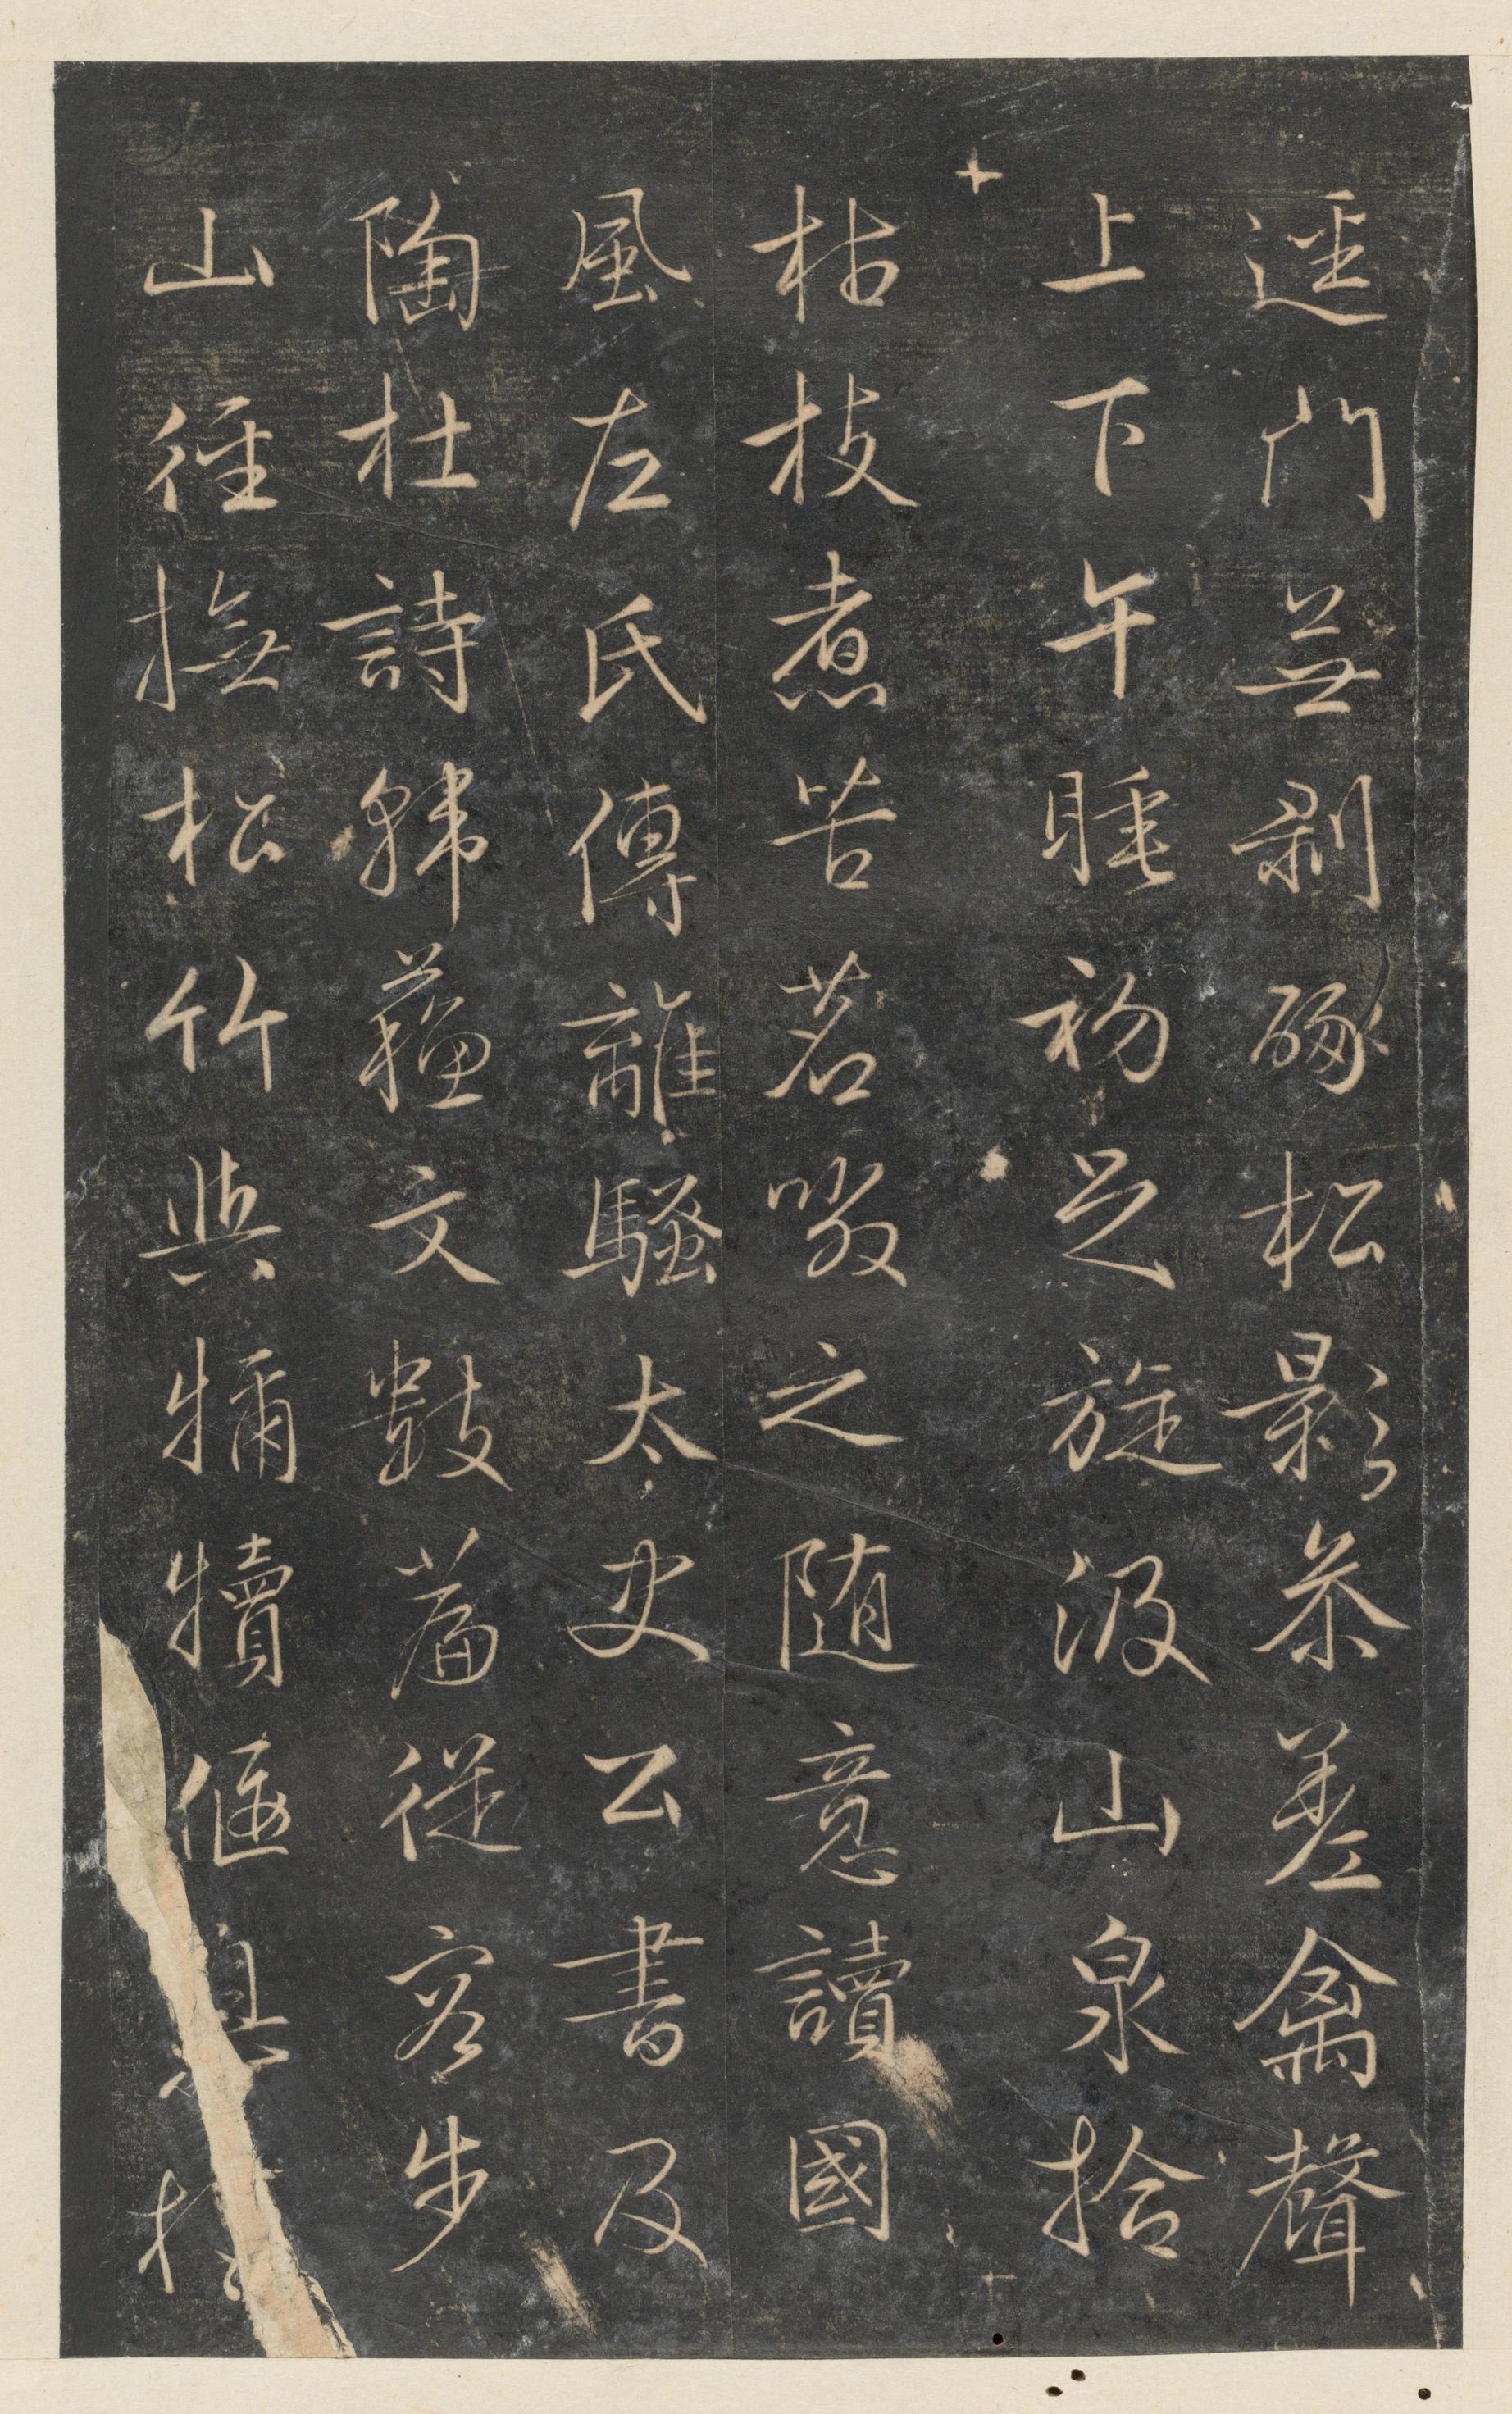 逕門無剥啄松影參差禽聲
上下午睡初足旋汲山泉拾
枯枝煮苦茗啜之随意讀國
風左氏傳離騷太史公書及
陶杜詩韓蘇文數篇從容步
山徑撫松竹與犢偃息於